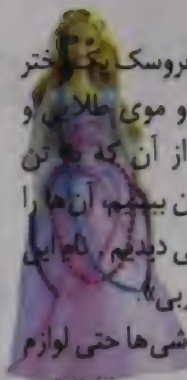 عروسک یک دختر
و موی طلایی و
از آن که به تن
ن ببینیم، آن‌ها را
ی دیدیم. نام این
ربی»
شی‌ها حتی لوازم